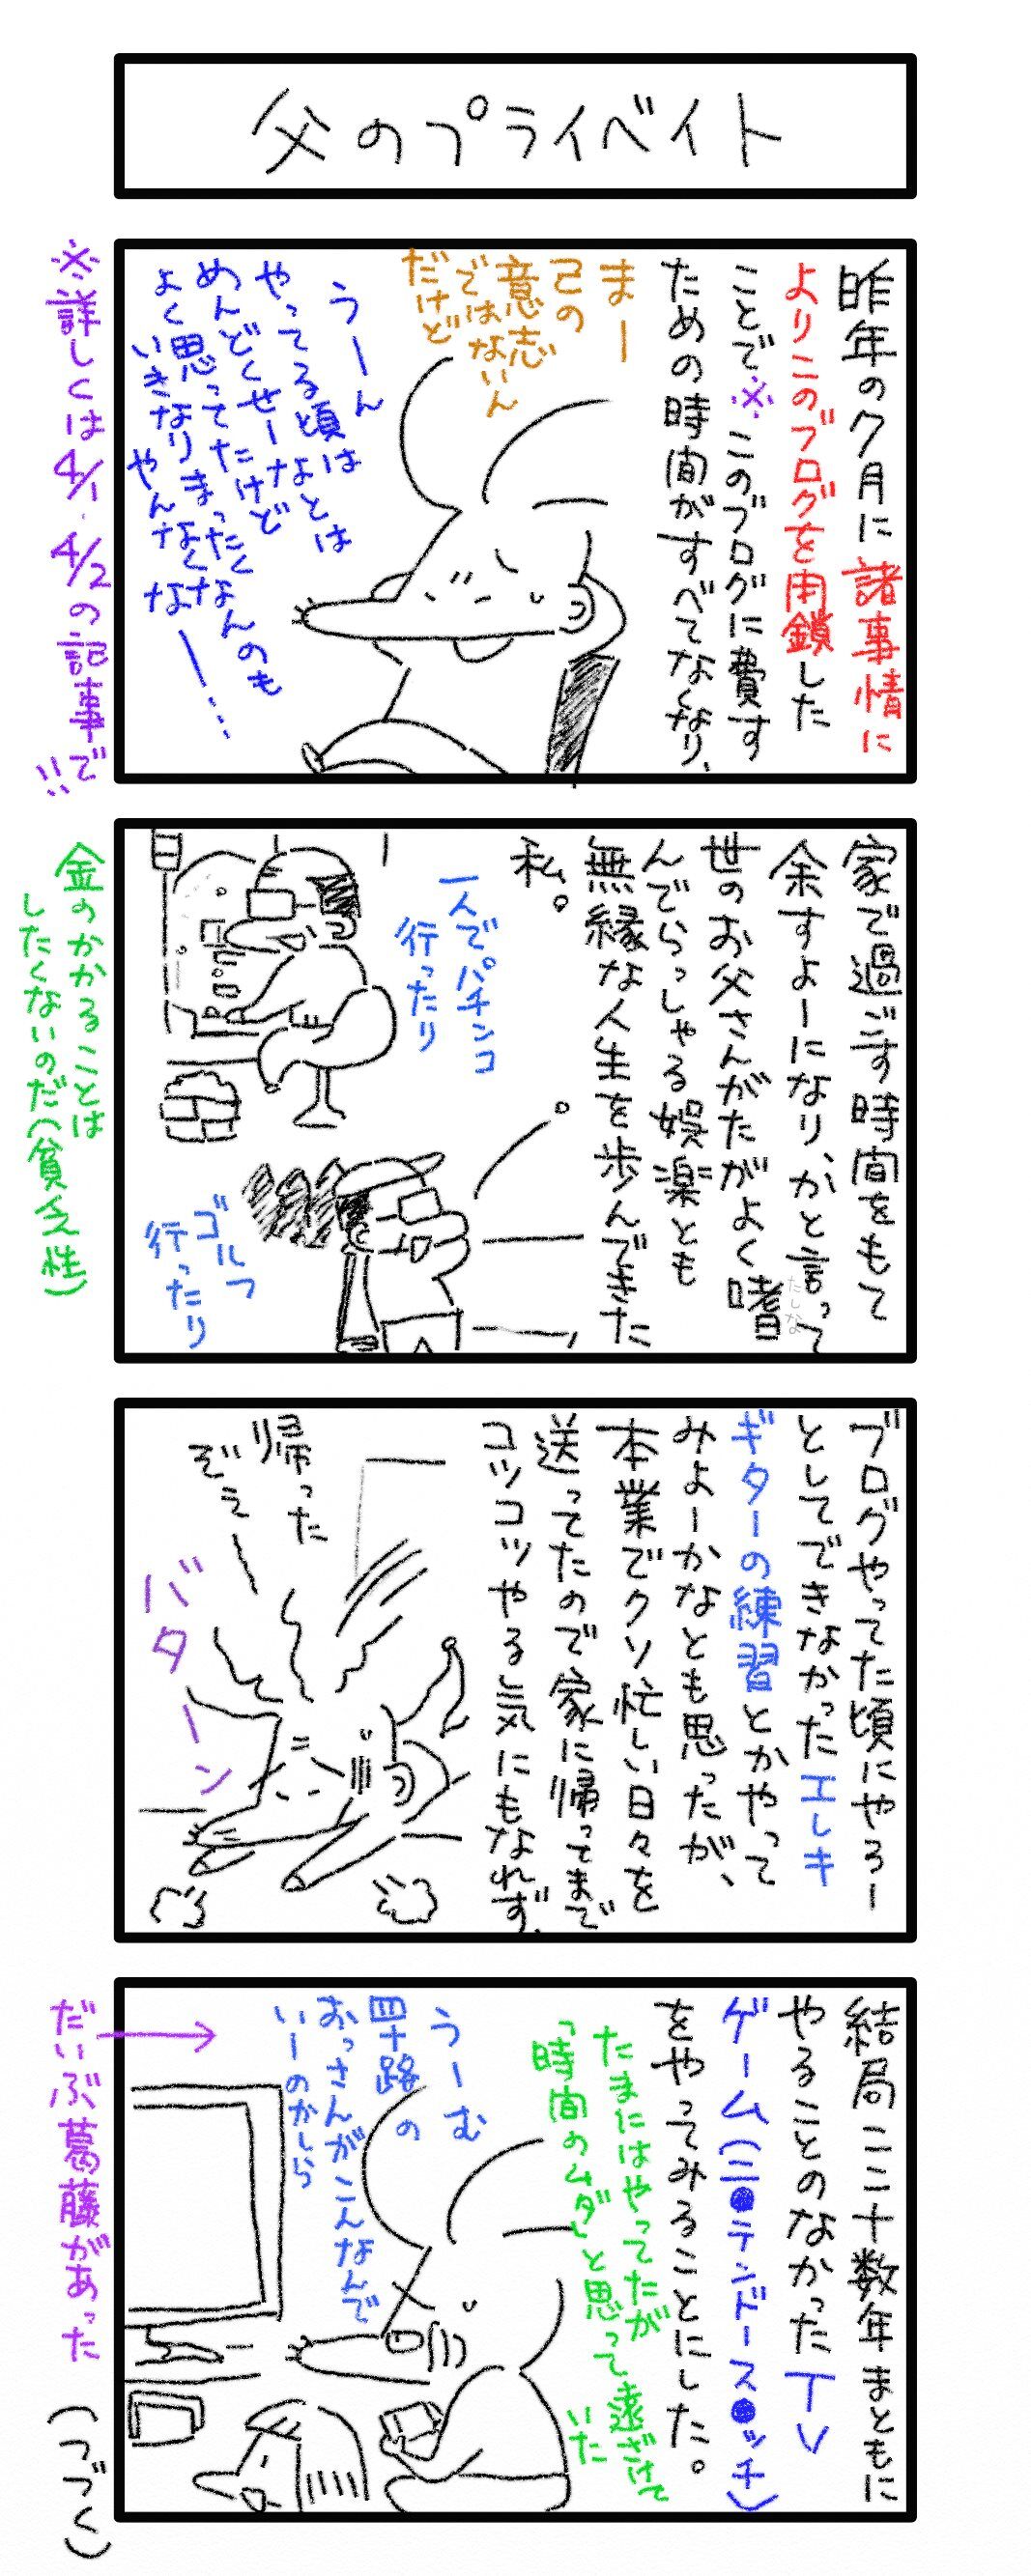 父のプライベイト
昨年の7月に諸事情に
よりこのブログを閉鎖した
ことで※このブログに費す
ための時間がすべてなくなり、
まー
己の
意志
ではないん
だけど
うーん
やってる頃は
めんどくせーなとは
よく思ってたけど
いきなりまったくなんのも
やんなくななー…
※詳しくは4/1、4/2の記事で!!
家で過ごす時間をもて
余すよーになり、かと言って
世のお父さんがたがよく嗜
たしな
んでらっしゃる娯楽とも
無縁な人生を歩んできた
私。
一人でパチンコ
行ったり
ゴルフ
行ったり
金のかかることは
したくないのだ(貧乏性)
ブログやってた頃にやろー
としてできなかったエレキ
ギターの練習とかやって
みよーかなとも思ったが、
本業でクソ忙しい日々を
送ってたので家に帰ってまで
コツコツやる気にもなれず、
帰った
ぞぇー
バターン
結局ここ十数年まともに
やることのなかったTV
ゲーム(ニ●テンドース●ッチ)
をやってみることにした。
たまにはやってたが
「時間のムダ」と思って遠ざけて
いた
うーむ
四十路の
おっさんがこんなんで
いーのかしら
だいぶ葛藤があった
(つづく)